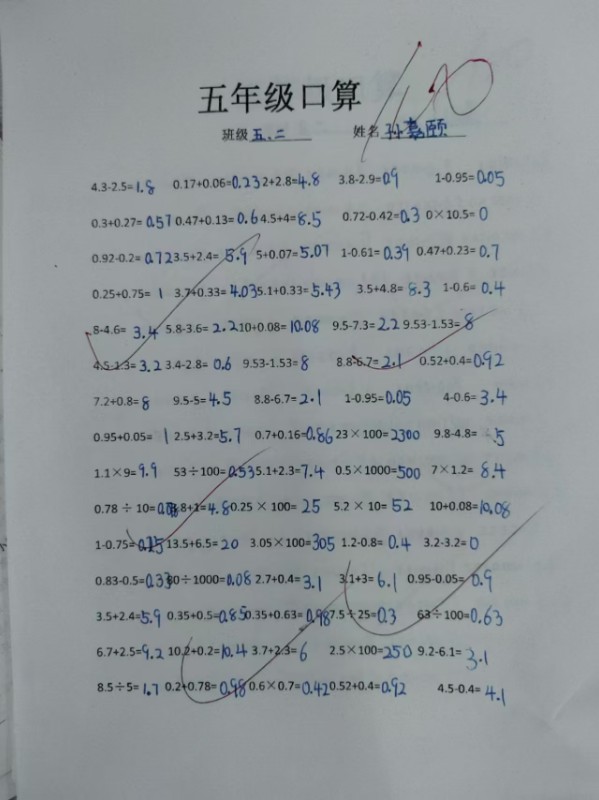 100
五年级口算
班级 五.二 姓名 孙嘉颐
4.3-2.5=1.8 0.17+0.06=0.23 2+2.8=4.8 3.8-2.9=0.9 1-0.95=0.05
0.3+0.27=0.57 0.47+0.13=0.6 4.5+4=8.5 0.72-0.42=0.3 0×10.5=0
0.92-0.2=0.72 3.5+2.4=5.9 5+0.07=5.07 1-0.61=0.39 0.47+0.23=0.7
0.25+0.75=1 3.7+0.33=4.03 5.1+0.33=5.43 3.5+4.8=8.3 1-0.6=0.4
8-4.6=3.4 5.8-3.6=2.2 10+0.08=10.08 9.5-7.3=2.2 9.53-1.53=8
4.5-1.3=3.2 3.4-2.8=0.6 9.53-1.53=8 8.8-6.7=2.1 0.52+0.4=0.92
7.2+0.8=8 9.5-5=4.5 8.8-6.7=2.1 1-0.95=0.05 4-0.6=3.4
0.95+0.05=1 2.5+3.2=5.7 0.7+0.16=0.86 23×100=2300 9.8-4.8=5
1.1×9=9.9 53÷100=0.53 5.1+2.3=7.4 0.5×1000=500 7×1.2=8.4
0.78÷10= 3.8+1=4.8 0.25×100=25 5.2×10=52 10+0.08=10.08
1-0.75=0.25 13.5+6.5=20 3.05×100=305 1.2-0.8=0.4 3.2-3.2=0
0.83-0.5=0.33 80÷1000=0.08 2.7+0.4=3.1 3.1+3=6.1 0.95-0.05=0.9
3.5+2.4=5.9 0.35+0.5=0.85 0.35+0.63=0.98 7.5÷25=0.3 63÷100=0.63
6.7+2.5=9.2 10.2+0.2=10.4 3.7+2.3=6 2.5×100=250 9.2-6.1=3.1
8.5÷5=1.7 0.2+0.78=0.98 0.6×0.7=0.42 0.52+0.4=0.92 4.5-0.4=4.1